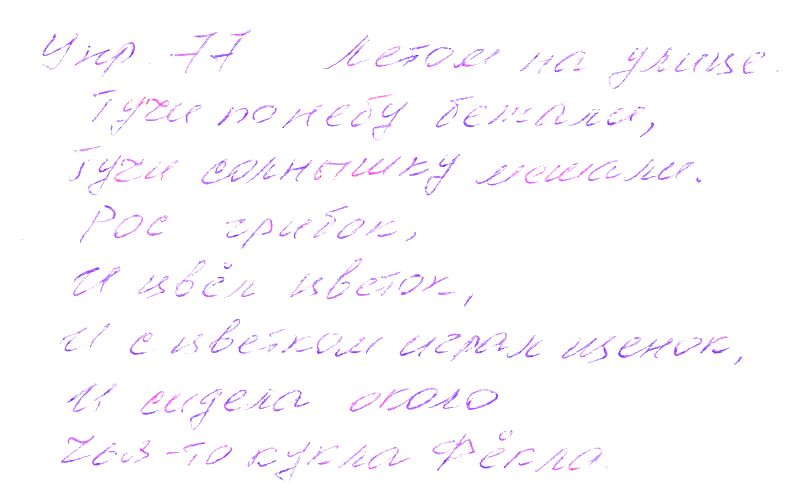 Упр. 77 Летом на улице.
Тучи по небу бежали,
Тучи солнышку мешали.
Рос грибок,
И цвёл цветок,
И с цветком играл щенок,
И сидела около
Чья-то кукла Фёкла.